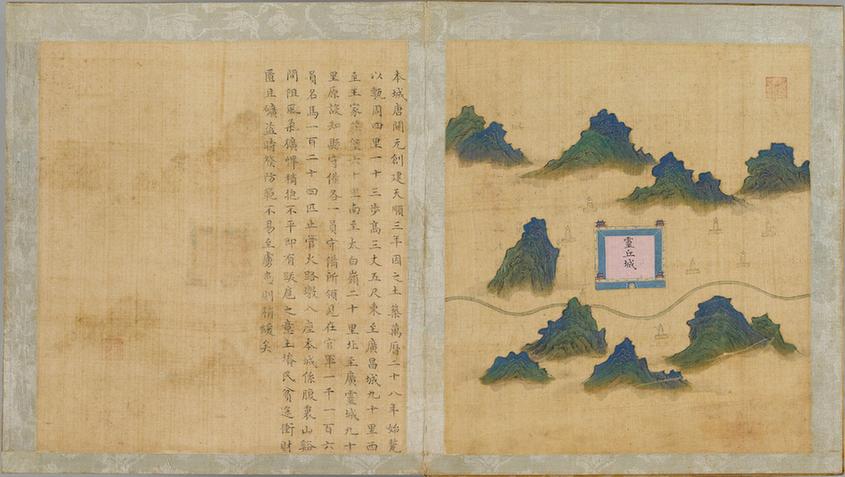 本城唐開元創建天順三年因之土築萬曆二十八年始甃
以甎周四里一十三步高三丈五尺東至廣昌城九十里西
至王家莊堡六十里南至太白嶺二十里北至廣靈城九十
里原設知縣守備各一員守備所領見在官軍一千一百六
員名馬一百二十四匹止管火路墩八座本城係腹裏山谿
間阻風柔獷悍稍拖不平即有跋扈之意土瘠民貧逃衝財
匱且礦盜時發防範不易至虜患則稍緩矣
靈丘城